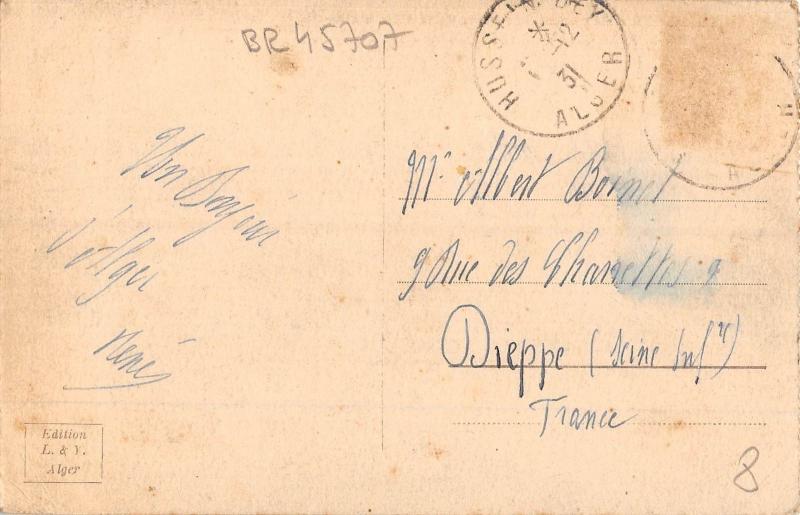 BR 45707
HUSSEIN-DEY
* 12
31
ALGER
Un Bonjour
d'Alger
René
Mr Albert Bonnet
9 Rue des Charrettes 9
Dieppe (Seine Infre)
France
Edition
L. & Y.
Alger
8